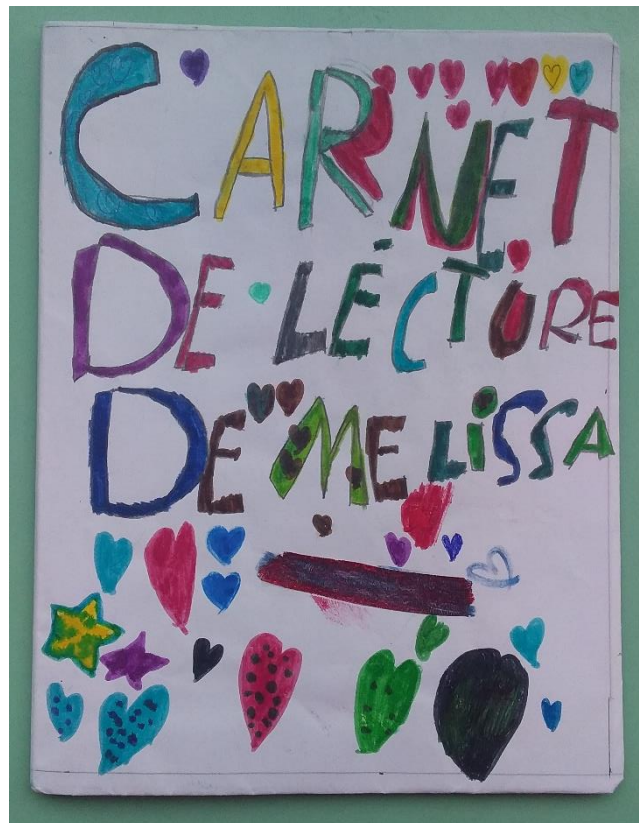 CARNET
DE LÉCTURE
DE MELiSSA